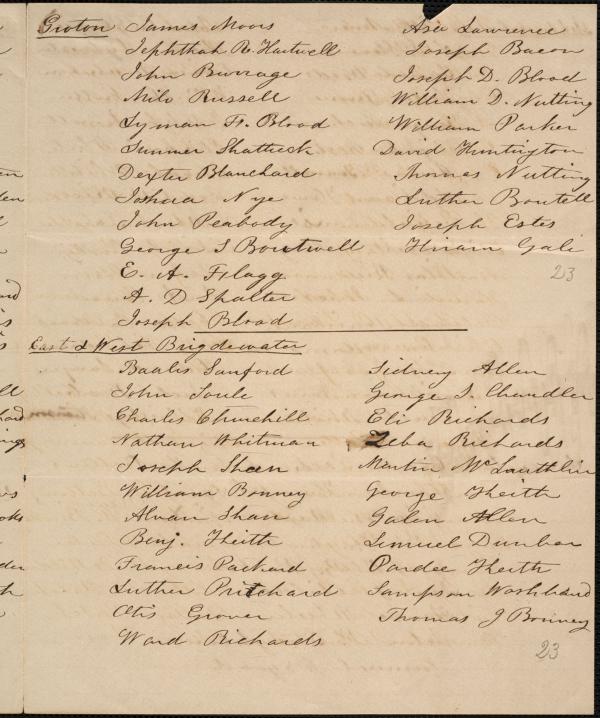 Groton James Moors
Jephthah R. Hartwell
John Burrage
Milo Russell
Lyman F. Blood
Sumner Shattuck
Dexter Blanchard
Joshua Nye
John Peabody
George S Boutwell
E. A. Flagg
A. D Spalter
Joseph Blood
Asa Lawrence
Joseph Bacon
Joseph D. Blood
William D. Nutting
William Parker
David Huntington
Thomas Nutting
Luther Boutell
Joseph Estes
Hiram Gale
23
East & West Brigdewater
Baalis Sanford
John Soule
Charles Churchill
Nathan Whitman
Joseph Sheen
William Bonney
Alvan Shaw
Benj. Keith
Francis Packard
Luther Pritchard
Otis Grover
Ward Richards
Sidney Allen
George S. Chandler
Eli Richards
Zeba Richards
Martin McLauthlin
George Keith
Galen Allen
Lemuel Dunbar
Pardee Keith
Sampson Washband
Thomas J Bonney
23